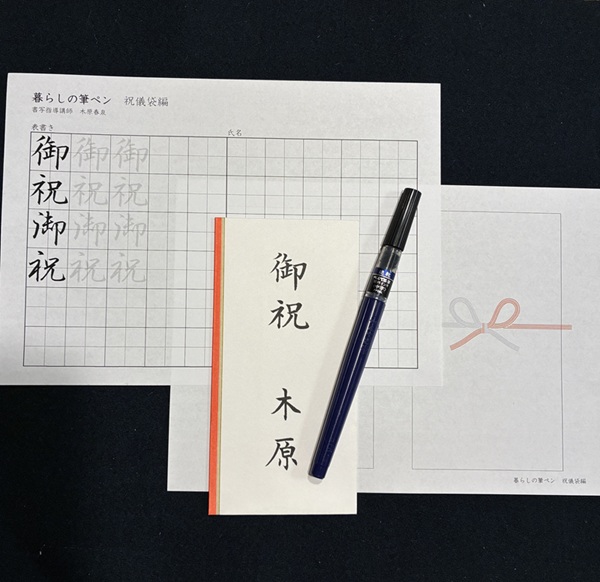 暮らしの筆ペン 祝儀袋編
書写指導講師 木原春泉
表書き
氏名
御御御
祝祝祝
御御御
祝祝祝
御祝 木原
暮らしの筆ペン 祝儀袋編